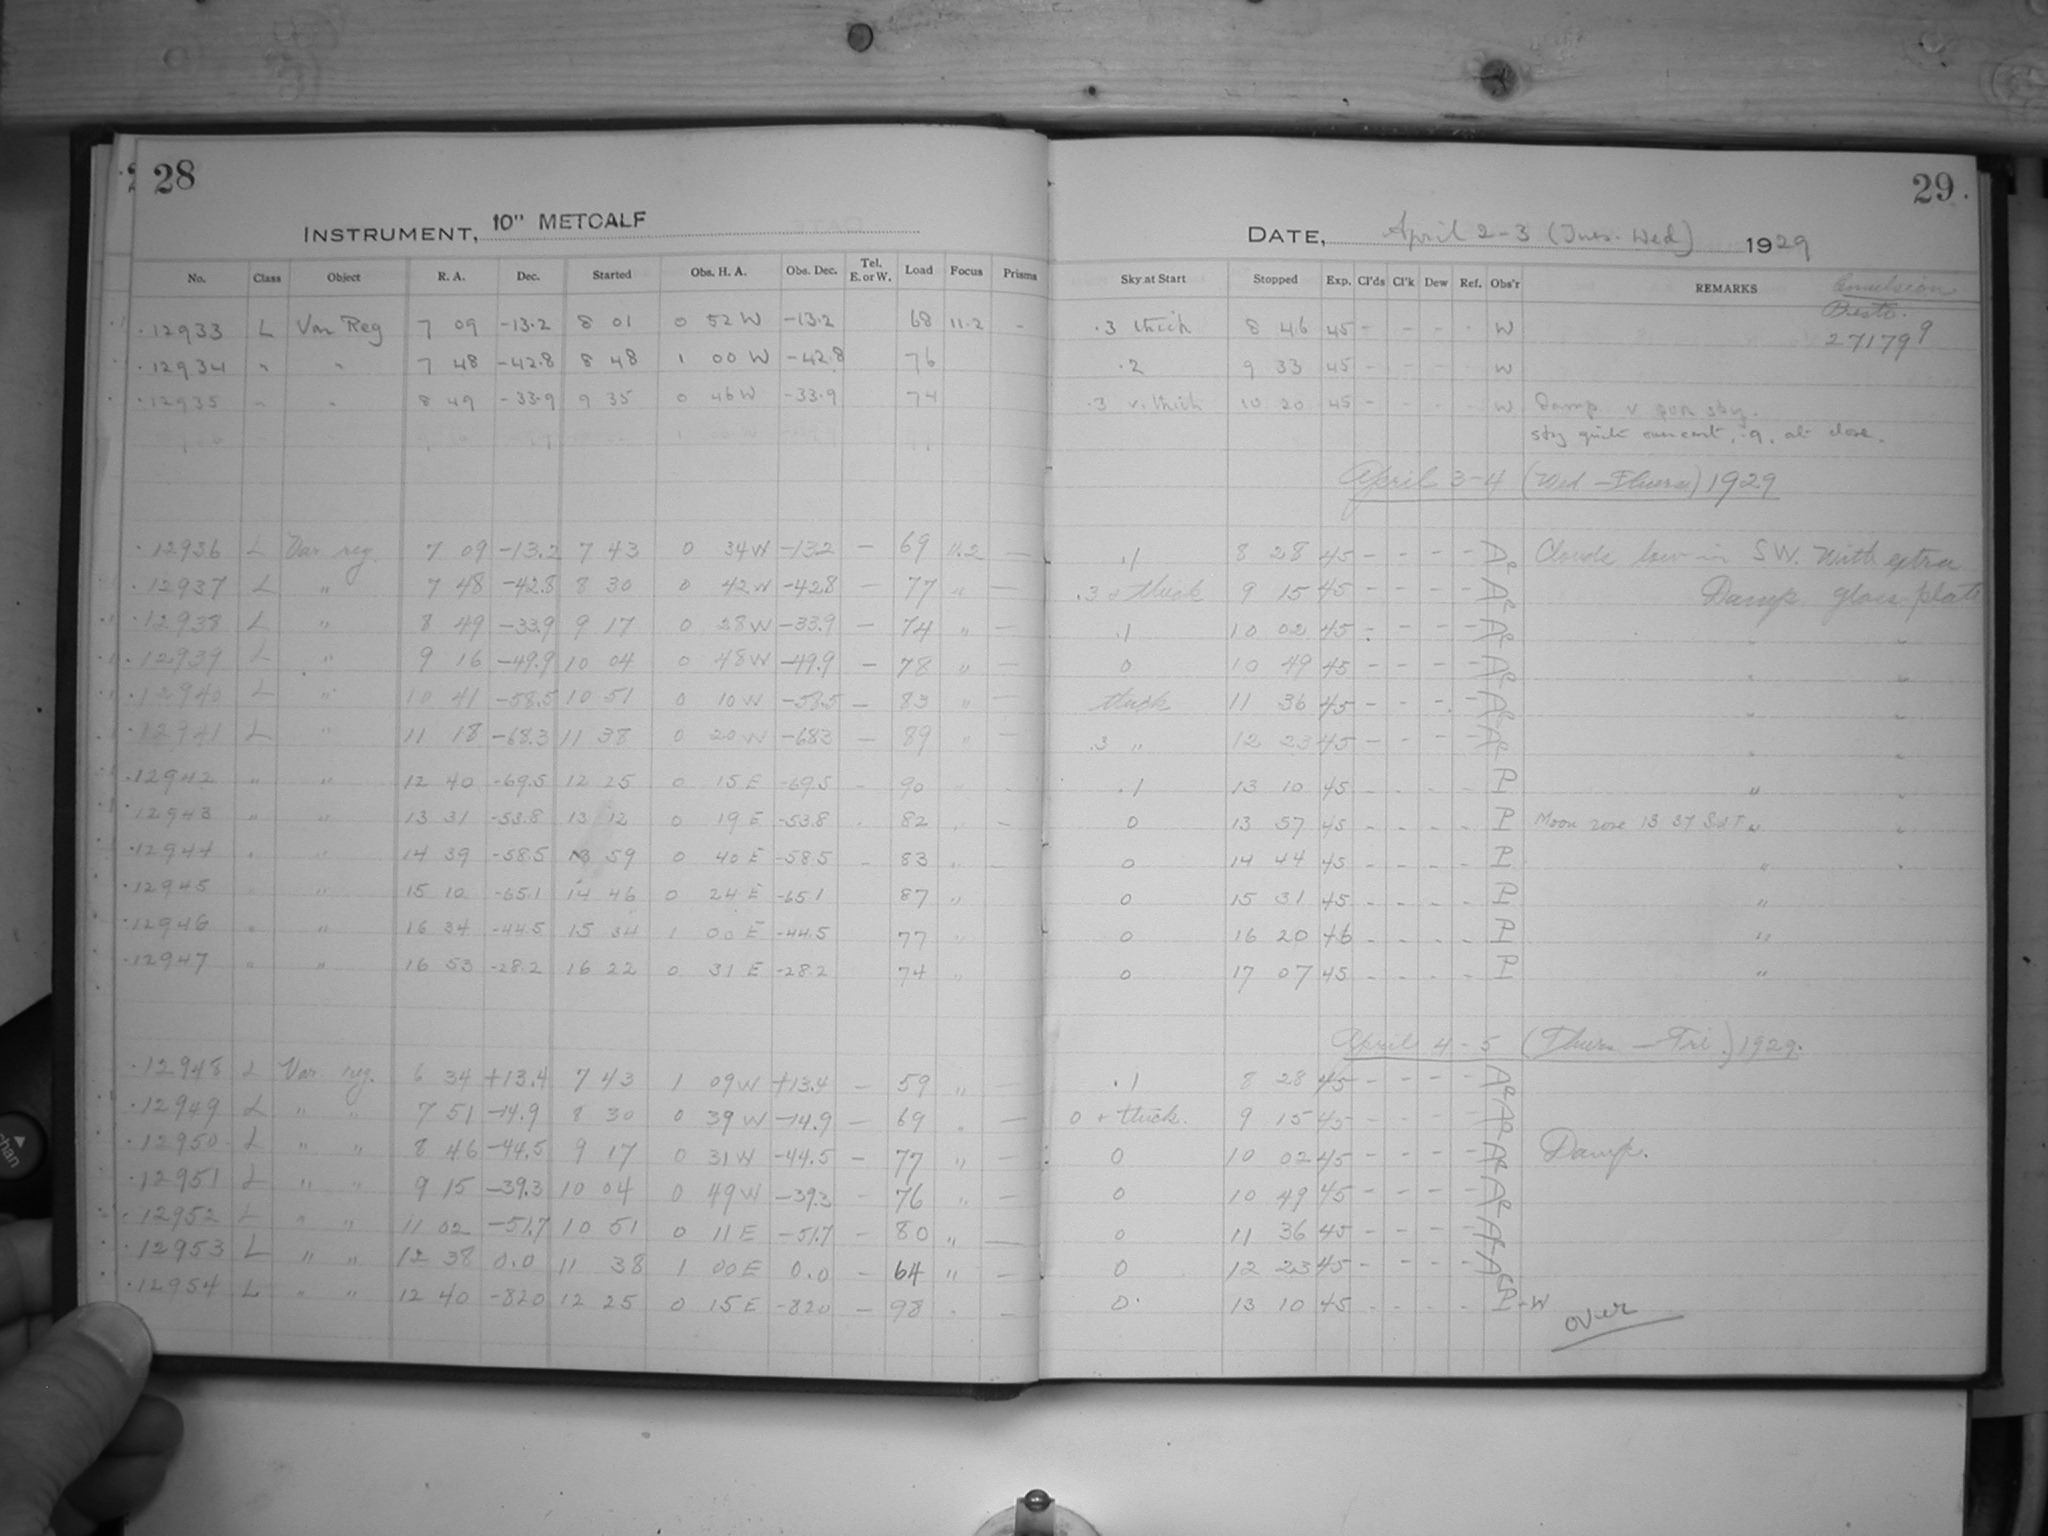 28
INSTRUMENT, 10" METCALF
No. Class Object R. A. Dec. Started Obs. H. A. Obs. Dec. Tel. E. or W. Load Focus Prisms
12933 L Var Reg 7 09 -13.2 8 01 0 52 W -13.2 68 11.2 -
12934 " " 7 48 -42.8 8 48 1 00 W -42.8 76
12935 " " 8 49 -33.9 9 35 0 46 W -33.9 74
12936 L Var reg. 7 09 -13.2 7 43 0 34 W -13.2 - 69 11.2 -
12937 L " 7 48 -42.8 8 30 0 42 W -42.8 - 77 " -
12938 L " 8 49 -33.9 9 17 0 28 W -33.9 - 74 " -
12939 L " 9 16 -49.9 10 04 0 48 W -49.9 - 78 " -
12940 L " 10 41 -58.5 10 51 0 10 W -58.5 - 83 " -
12941 L " 11 18 -68.3 11 38 0 20 W -683 - 89 " -
12942 " " 12 40 -69.5 12 25 0 15 E -69.5 - 90 " -
12943 " " 13 31 -53.8 13 12 0 19 E -53.8 - 82 " -
12944 " " 14 39 -58.5 13 59 0 40 E -58.5 - 83 " -
12945 " " 15 10 -65.1 14 46 0 24 E -65.1 87 "
12946 " " 16 34 -44.5 15 34 1 00 E -44.5 77 "
12947 " " 16 53 -28.2 16 22 0 31 E -28.2 74 "
12948 L Var. reg. 6 34 +13.4 7 43 1 09 W +13.4 - 59 " -
12949 L " " 7 51 -14.9 8 30 0 39 W -14.9 - 69 " -
12950 L " " 8 46 -44.5 9 17 0 31 W -44.5 - 77 " -
12951 L " " 9 15 -39.3 10 04 0 49 W -39.3 - 76 " -
12952 L " " 11 02 -51.7 10 51 0 11 E -51.7 - 80 " -
12953 L " " 12 38 0.0 11 38 1 00 E 0.0 - 64 " -
12954 L " " 12 40 -820 12 25 0 15 E -820 - 98 " -
29.
DATE, April 2-3 (Tues. Wed) 1929
Sky at Start Stopped Exp. Cl'ds Cl'k Dew Ref. Obs'r REMARKS Emulsion
Presto.
271799
.3 thick 8 46 45 - - - - W
.2 9 33 45 - - - - W
.3 v. thick 10 20 45 - - - - W Damp v poor sky.
sky quite overcast, .9, at close.
April 3-4 (Wed - Thurs) 1929
.1 8 28 45 - - - - Clouds low in SW. With extra
.3 + thick 9 15 45 - - - - Damp glass plate
.1 10 02 45 - - - - " "
0 10 49 45 - - - - " "
thick 11 36 45 - - - - " "
.3 " 12 23 45 - - - - " "
.1 13 10 45 - - - - P " "
0 13 57 45 - - - - P Moon rose 13 37 SdT " "
0 14 44 45 - - - - P " "
0 15 31 45 - - - - P "
0 16 20 46 - - - - P "
0 17 07 45 - - - - P "
April 4-5 (Thurs - Fri.) 1929.
.1 8 28 45 - - - -
0 + thick. 9 15 45 - - - -
0 10 02 45 - - - - Damp.
0 10 49 45 - - - -
0 11 36 45 - - - -
0 12 23 45 - - - -
0 13 10 45 - - - - P-W
over